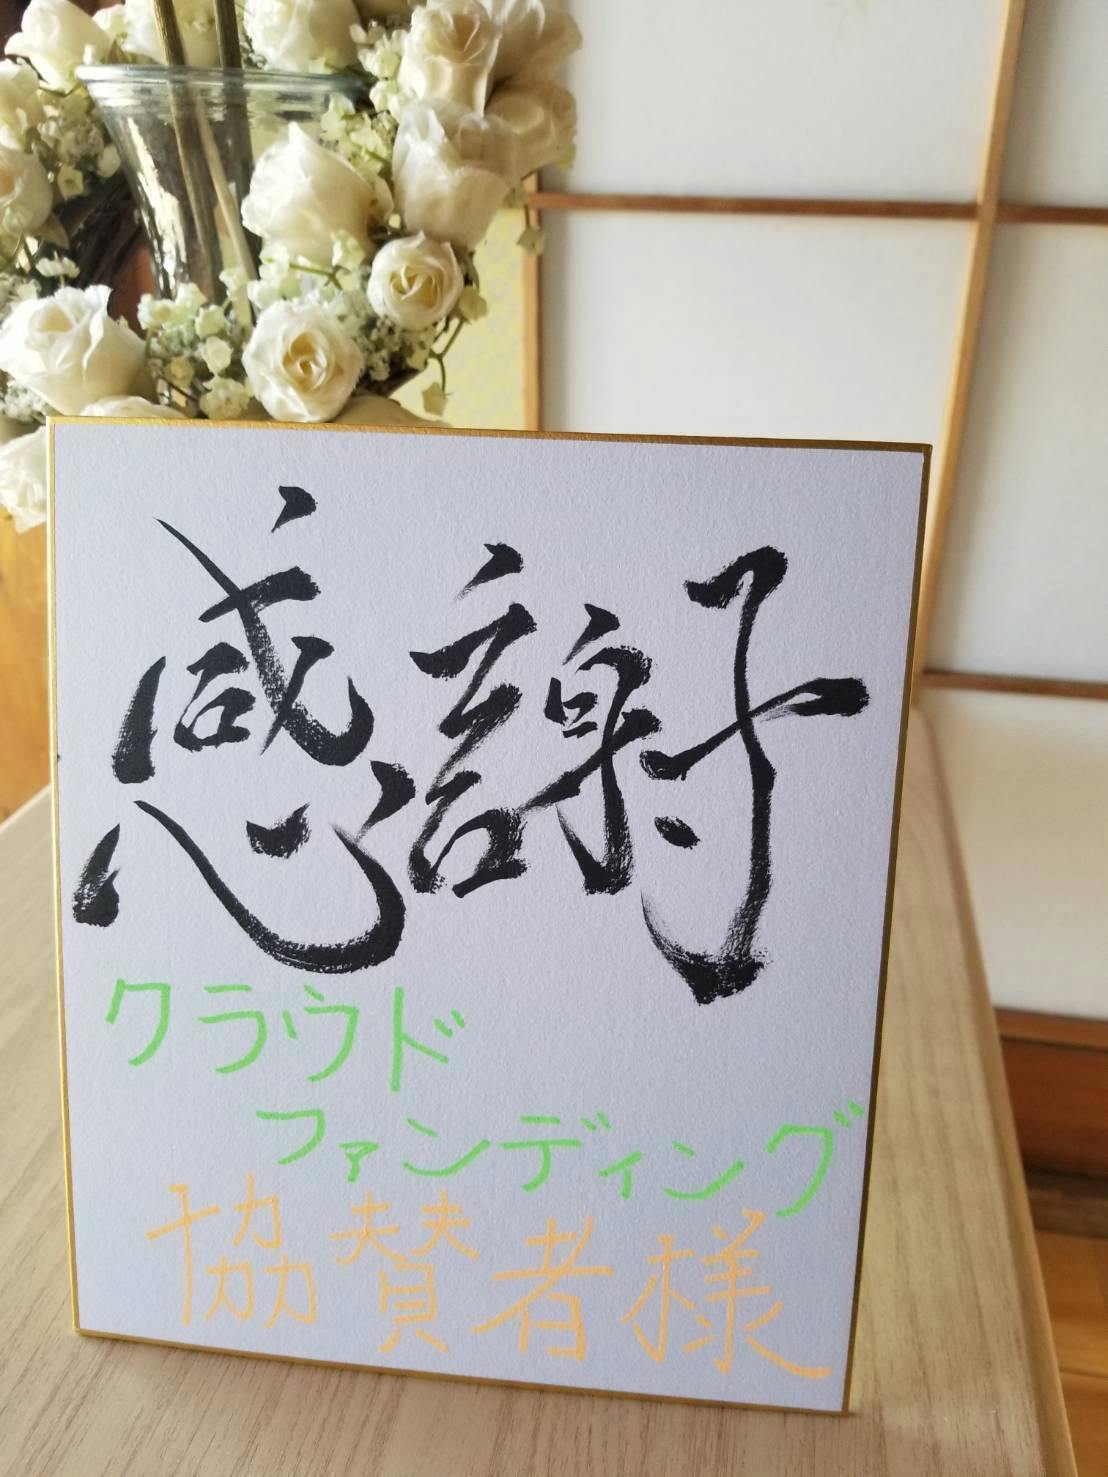 感謝
クラウド
ファンディング
協賛者様